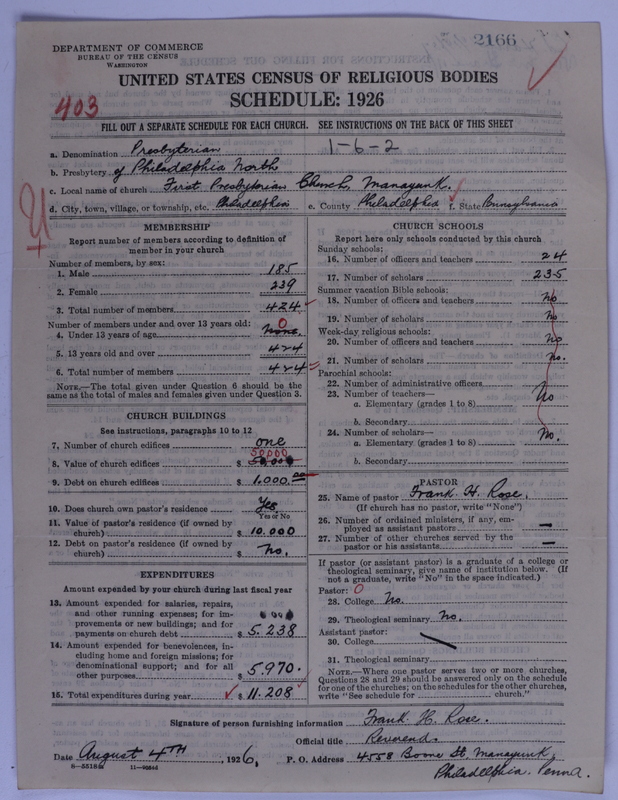 2166
DEPARTMENT OF COMMERCE
BUREAU OF THE CENSUS
WASHINGTON
UNITED STATES CENSUS OF RELIGIOUS BODIES
SCHEDULE: 1926
403
FILL OUT A SEPARATE SCHEDULE FOR EACH CHURCH. SEE INSTRUCTIONS ON THE BACK OF THIS SHEET
a. Denomination Presbyterian 1-6-2
b. Presbytery of Philadelphia North
c. Local name of church First Presbyterian Church, Manayunk.
d. City, town, village, or township, etc. Philadelphia e. County Philadelphia f. State Pennsylvania
U
MEMBERSHIP
Report number of members according to definition of
member in your church
Number of members, by sex:
1. Male 185
2. Female 239
3. Total number of members 424
Number of members under and over 13 years old: 0
4. Under 13 years of age None.
5. 13 years old and over 424
6. Total number of members 424
NOTE.—The total given under Question 6 should be the
same as the total of males and females given under Question 3.
CHURCH BUILDINGS
See instructions, paragraphs 10 to 12
7. Number of church edifices one
50,000
8. Value of church edifices $ 50,000
9. Debt on church edifices $ 1,000.00
10. Does church own pastor's residence? Yes
Yes or No
11. Value of pastor's residence (if owned by
church) $ 10.000
12. Debt on pastor's residence (if owned by
church) $ No.
EXPENDITURES
Amount expended by your church during last fiscal year
13. Amount expended for salaries, repairs,
and other running expenses; for im-
provements or new buildings; and for
payments on church debt $ 5.238
14. Amount expended for benevolences, in-
cluding home and foreign missions; for
denominational support; and for all
other purposes 5.970.
15. Total expenditures during year $ 11.208
CHURCH SCHOOLS
Report here only schools conducted by this church
Sunday schools:
16. Number of officers and teachers 24
17. Number of scholars 235
Summer vacation Bible schools:
18. Number of officers and teachers No
19. Number of scholars No
Week-day religious schools:
20. Number of officers and teachers No
21. Number of scholars No.
Parochial schools:
22. Number of administrative officers
23. Number of teachers—
a. Elementary (grades 1 to 8) No
b. Secondary
24. Number of scholars—
a. Elementary (grades 1 to 8) No.
b. Secondary
PASTOR
25. Name of pastor Frank H. Rose.
(If church has no pastor, write "None")
26. Number of ordained ministers, if any, em-
ployed as assistant pastors —
27. Number of other churches served by the
pastor or his assistants —
If pastor (or assistant pastor) is a graduate of a college or
theological seminary, give name of institution below. (If
not a graduate, write "No" in the space indicated.)
Pastor: 0
28. College No.
29. Theological seminary No.
Assistant pastor:
30. College
31. Theological seminary
NOTE.—Where one pastor serves two or more churches,
Questions 28 and 29 should be answered only on the schedule
for one of the churches; on the schedules for the other churches,
write "See schedule for church."
Signature of person furnishing information Frank H. Rose.
Official title Reverend.
Date August 4TH, 1926. P. O. Address 4558 Boone St. Manayunk
Philadelphia. Penna.